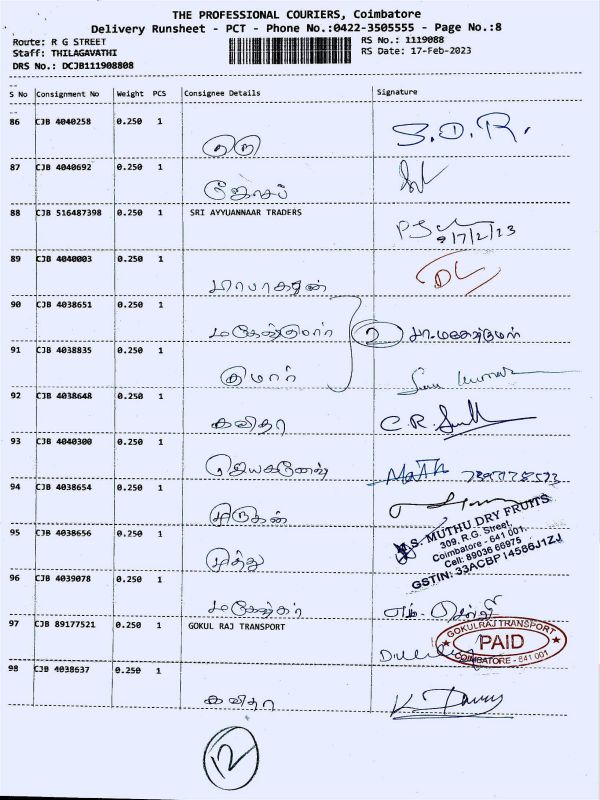 THE PROFESSIONAL COURIERS, Coimbatore
Delivery Runsheet - PCT - Phone No.:0422-3505555 - Page No.:8
Route: R G STREET
RS No.: 1119088
Staff: THILAGAVATHI
RS Date: 17-Feb-2023
DRS No.: DCJB111908808
S No Consignment No Weight PCS Consignee Details Signature
86 CJB 4040258 0.250 1 S.D.R.
87 CJB 4040692 0.250 1 ஜோசப்
88 CJB 516487398 0.250 1 SRI AYYUANNAAR TRADERS
17/2/23
89 CJB 4040003 0.250 1 பிரபாகரன் DL
90 CJB 4038651 0.250 1 மகேஷ்குமார் 2
91 CJB 4038835 0.250 1 குமார் Kumar
92 CJB 4038648 0.250 1 கவிதா C.R.
93 CJB 4040300 0.250 1 ஜெயகணேஷ்
94 CJB 4038654 0.250 1 முருகன்
95 CJB 4038656 0.250 1 முத்து
S. MUTHU DRY FRUITS
309, R.G. Street,
Coimbatore - 641 001.
Cell: 89036 66975
GSTIN: 33ACBP14586J1ZJ
96 CJB 4039078 0.250 1
97 CJB 89177521 0.250 1 GOKUL RAJ TRANSPORT
GOKULRAJ TRANSPORT
PAID
COIMBATORE - 641 001
98 CJB 4038637 0.250 1 கவிதா
12